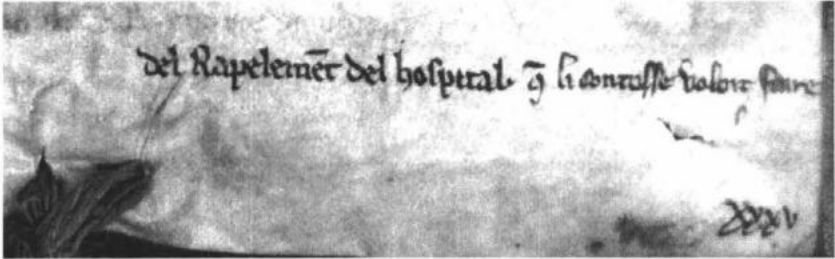 del Rapelemēt del hospital. q̄ li contesse voloit faire
xxxv